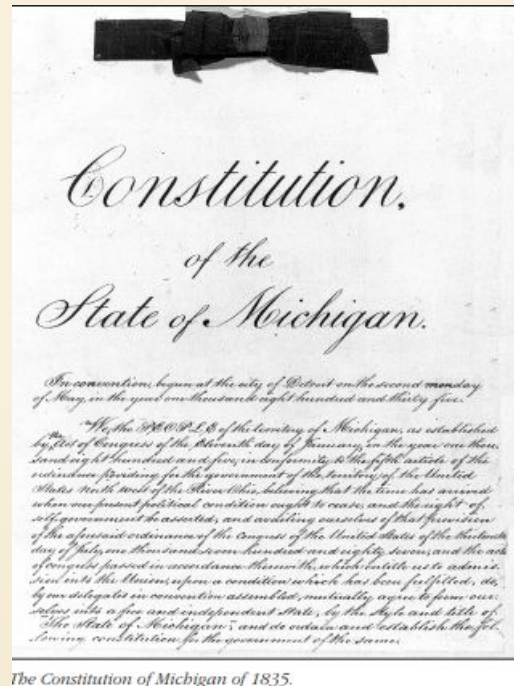 Constitution.
of the
State of Michigan.
In convention, begun at the city of Detroit on the second monday
of May, in the year one thousand eight hundred and thirty five.
We, the PEOPLE of the territory of Michigan, as established
by the Act of Congress of the Eleventh day of January, in the year one thou-
sand eight hundred and five, in conformity to the fifth article of the
ordinance providing for the government of the territory of the United
States North west of the River Ohio, believing that the time has arrived
when our present political condition ought to cease, and the right of
self-government be asserted; and availing ourselves of that provision
of the aforesaid ordinance of the congress of the United States of the thirteenth
day of July, one thousand seven hundred and eighty seven, and the acts
of congress passed in accordance therewith, which entitle us to admis-
sion into the Union, upon a condition which has been fulfilled, do,
by our delegates in convention assembled, mutually agree to form our-
selves into a free and independent state, by the style and title of
"The State of Michigan", and do ordain and establish the fol-
lowing constitution for the government of the same.
The Constitution of Michigan of 1835.